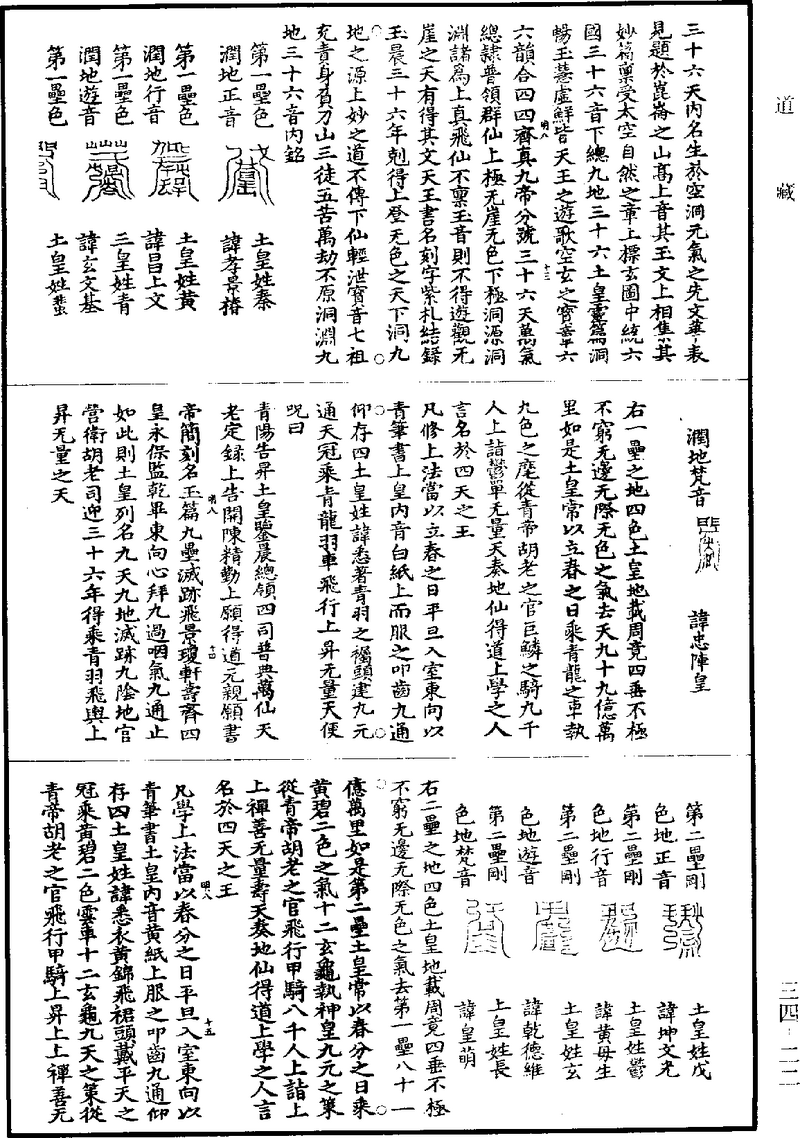 道藏
三十六天內名生於空洞元氣之先文華表
見題於崑崙之山髙上音其玉文上相集其
妙篇稟受太空自然之章上標玄圖中統六
國三十六音下總九地三十六土皇靈篇洞
暢玉慧虛鮮皆天王之遊歌空玄之寳章六
明八 十三
六韻合四四齊真九帝分號三十六天萬氣
總隷普領群仙上極无崖无色下極洞源洞
淵諸爲上真飛仙不禀玉音則不得遊觀无
崖之天有得其文天王書名刻字紫札結録
玉晨三十六年剋得上登无色之天下洞九
地之源上妙之道不傳下仙輕泄寳音七祖
充責身負刀山三徒五苦萬劫不原洞淵九
地三十六音內銘
第一壘色 土皇姓秦
潤地正音 諱孝景椿
第一壘色 土皇姓黄
潤地行音 諱昌上文
第一壘色 三皇姓青
潤地遊音 諱玄文基
第一壘色 土皇姓蜚
潤地梵音 諱忠陣皇
右一壘之地四色土皇地載周竟四垂不極
不窮无邊无際无色之氣去天九十九億萬
里如是土皇常以立春之日乘青龍之車執
九色之麾從青帝胡老之官巨鱗之騎九千
人上詣鬱單无量天奏地仙得道上學之人
言名於四天之王
凡修上法當以立春之日平旦入室東向以
青筆書上皇内音白紙上而服之叩齒九通
仰存四土皇姓諱悉著青羽之襡頭建九元
通天冠乘青龍羽車飛行上昇无量天便
呪曰
青陽告昇土皇鑒晨總領四司普典萬仙天
老定録上告開陳精勤上願得道元親願書
明八 十四
帝簡刻名玉篇九壘滅跡飛景瓊軒壽齊四
皇永保監乾畢東向心拜九過咽氣九通止
如此則土皇列名九天九地滅跡九陰地官
營衛胡老司迎三十六年得乘青羽飛輿上
昇无量之天
第二壘剛 土皇姓戊
色地正音 諱坤文光
第二壘剛 土皇姓鬱
色地行音 諱黄毋生
第二壘剛 土皇姓玄
色地遊音 諱乾德維
第二壘剛 上皇姓長
色地梵音 諱皇萌
右二壘之地四色土皇地載周竟四垂不極
不窮无邊无際无色之氣去第一壘八十一
億萬里如是第二壘土皇常以春分之日乘
黄碧二色之氣十二玄龜執神皇九元之策
從青帝胡老之官飛行甲騎八千人上詣上
上禪善无量壽天奏地仙得道上學之人言
名於四天之王
明八 十五
凡學上法當以春分之日平旦入室東向以
青筆書土皇内音黄紙上服之叩齒九通仰
存四土皇姓諱悉衣黄錦飛裙頭戴平天之
冠乘黄碧二色雲車十二玄龜九天之策從
青帝胡老之官飛行甲騎上昇上上禪善无
三四-二二